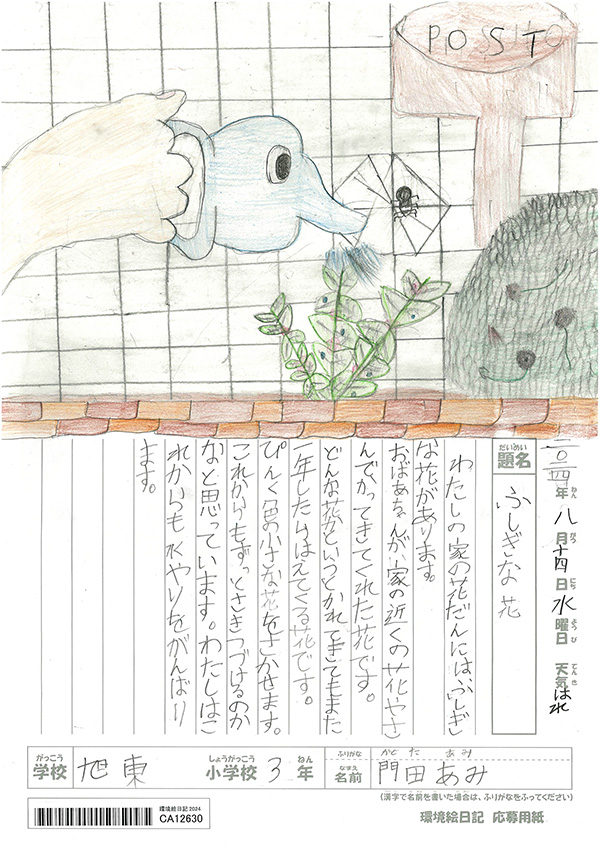 POSTO
二〇二四年八月十四日水曜日 天気はれ
ねん がつ にち ようび てんき
だいめい
題名 ふしぎな花
わたしの家の花だんには、ふしぎ
な花があります。
おばあちゃんが、家の近くの花やさ
んでかってきてくれた花です。
どんな花かというとかれてきてもまた
一年したらはえてくる花です。
ぴんく色の小さな花をさかせます。
これからもずっとさきつづけるのか
なと思っています。わたしはこ
れからも水やりをがんばり
ます。
がっこう しょうがっこう ねん ふりがな かどた あみ
学校 旭東 小学校 3年 なまえ 名前 門田あみ
(漢字で名前を書いた場合は、ふりがなをふってください)
環境絵日記2024
CA12630
環境絵日記 応募用紙